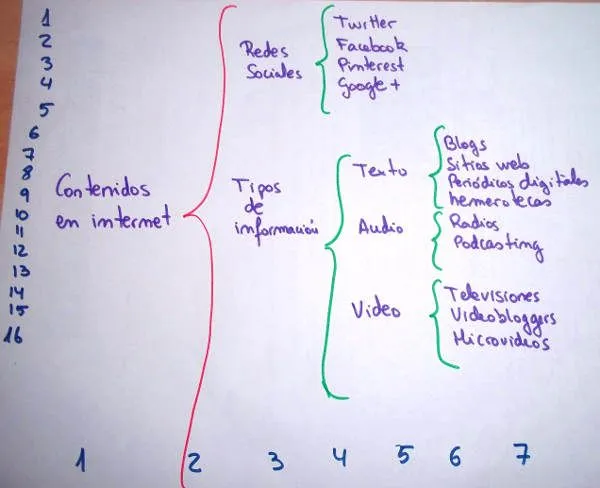 1
2
3
4
5
6
7
8
9
10
11
12
13
14
15
16
Contenidos
en internet
Redes
Sociales
Twitter
Facebook
Pinterest
Google +
Tipos
de
información
Texto
Blogs
Sitios web
Periódicos digitales
hemerotecas
Audio
Radios
Podcasting
Video
Televisiones
Videobloggers
Microvideos
1 2 3 4 5 6 7